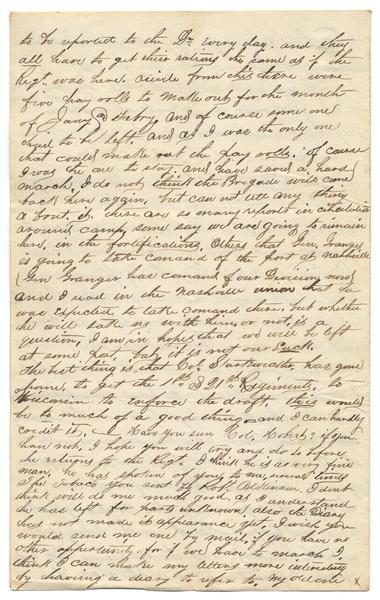 to be reported to the Dr. every day. and they
all have to get their rations the same as if the
Regt. was here. aside from this there were
five pay rolls to make out for the months
of Jany & Febry. and of course some one
had to be left. and as I was the only one
that could make out the pay rolls. of course
I was the one to stay. and have saved a hard
march. I do not think the Brigade will come
back here again. but can not tell any thing
about it. there are so many reports in circulation
around camp, some say we are going to remain
here, in the fortifications, Others that Gen. Granger
is going to take comand of the post at Nashville
(Gen Granger has comand of our Division now)
and I read in the Nashville union that he
was expected to take comand there, but whether
he will take us with him or not, is a
question, I am in hopes that we will be left
at some post, but it is not our luck.
The best thing is that Col. Starkweather, has gone
home, to get the 1st & 21st Regiments, to
Wisconsin to enforce the draft this would
be to much of a good thing and I can hardly
credit it, Have you seen Col. Hobart? if you
have not, I hope you will try and do so before
he returns to the Regt. I think he is a very fine
man, he has spoken of you to me several times
The Tobaco you sent by I dont
think will do me much good, as I understand
he has left for parts unknown, also the Diary
has not made it appearance yet, I wish you
would send me one by mail, if you have no
other opportunity. for if we have to march I
think I can make my letters more interesting
by having a diary to refer to, my old one x